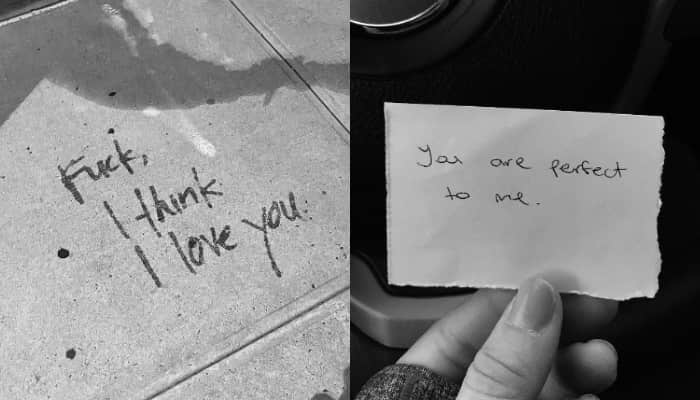 Fuck,
I think
I love you.
You are perfect
to me.